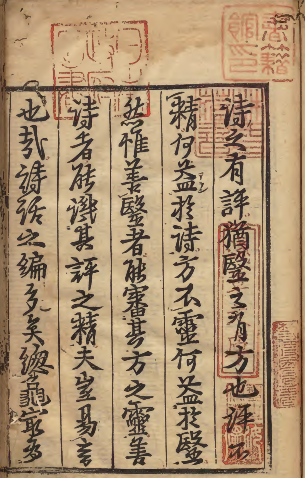 詩之有評猶醫之有方也評不
精何益於詩方不靈何益於醫
然惟善醫者能審其方之靈善
詩者能識其評之精夫豈易言
也哉詩話之編多矣緫龜最為